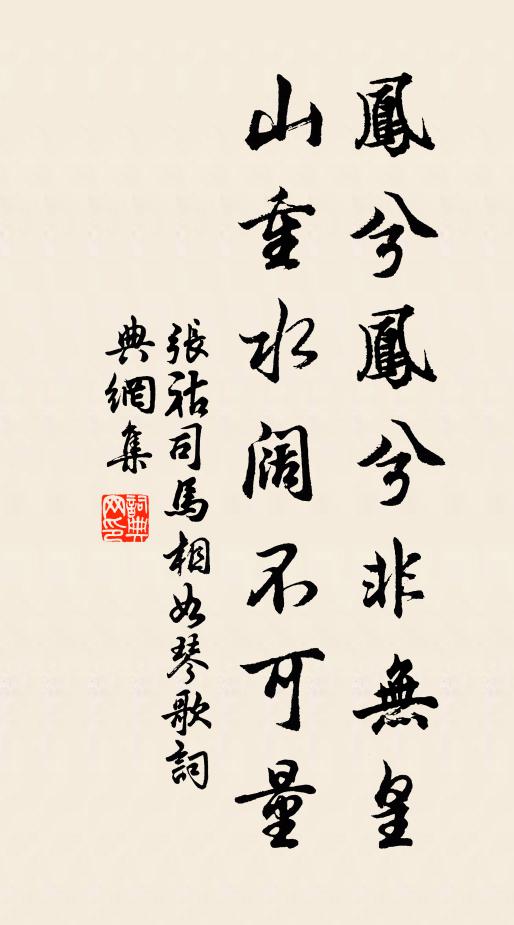 鳳兮鳳兮非無皇
山重水阔不可量
張祜司馬相如琴歌詞
典網集
詞典網印